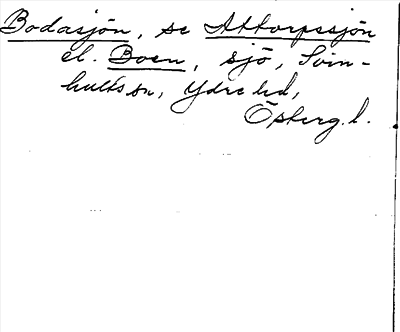 Bodasjön, se Attorpssjön
el. Boen, sjö, Svin-
hults sn, Ydre hd,
Östergl.